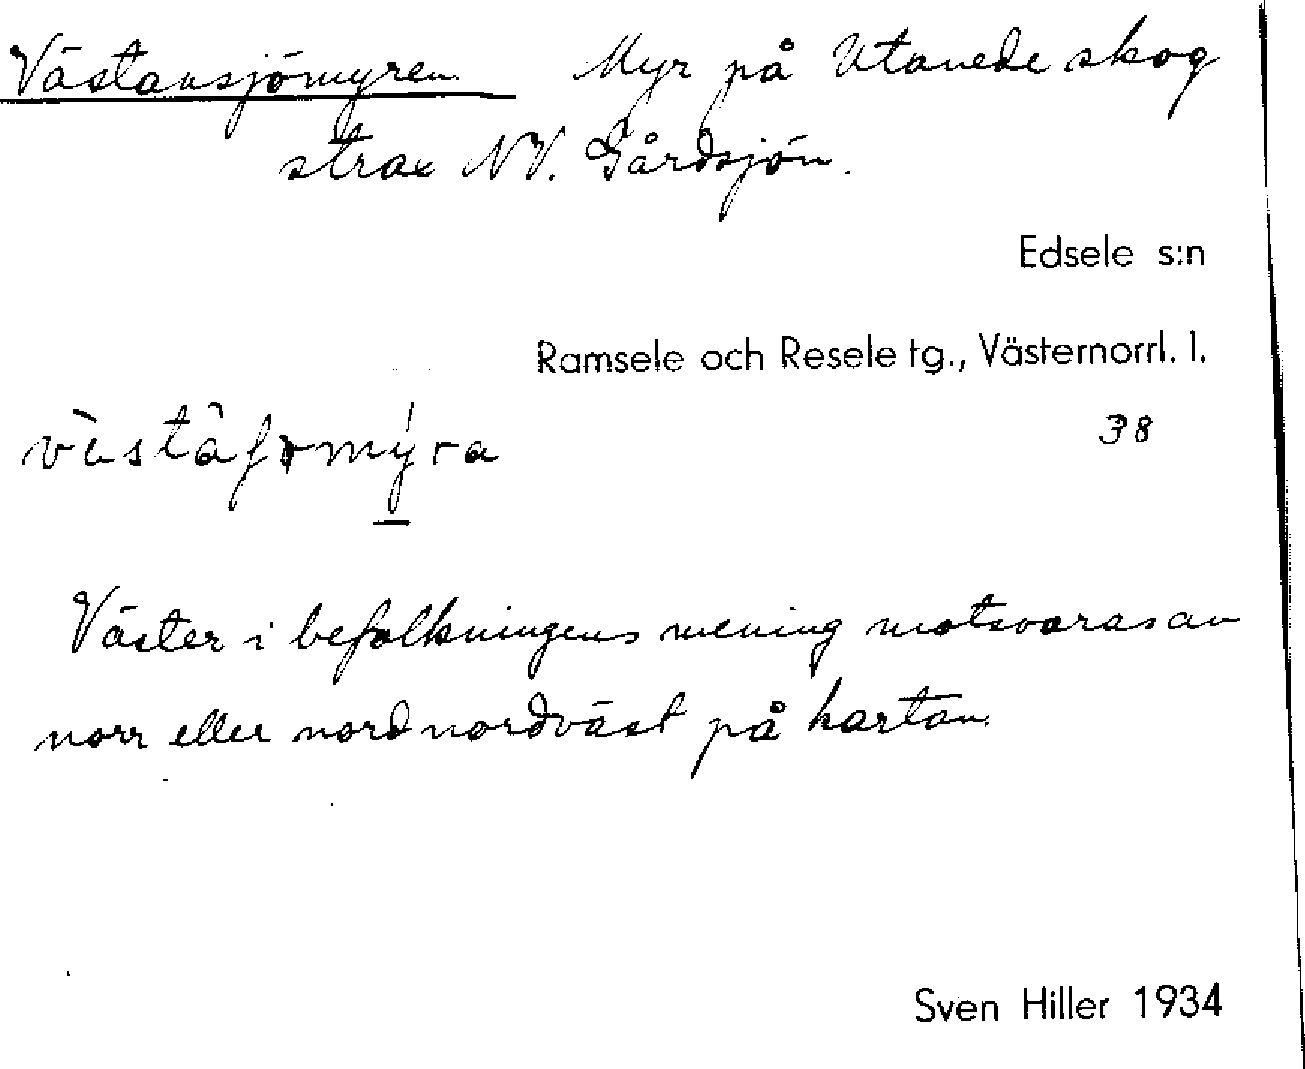 Västansjömyren. Myr på Utanede skog
strax NV. Gårdsjön.
Edsele s:n
Ramsele och Resele tg., Västernorrl. l.
38
Väster i befolkningens mening motsvaras av
norr eller nordnordväst på kartan.
Sven Hiller 1934